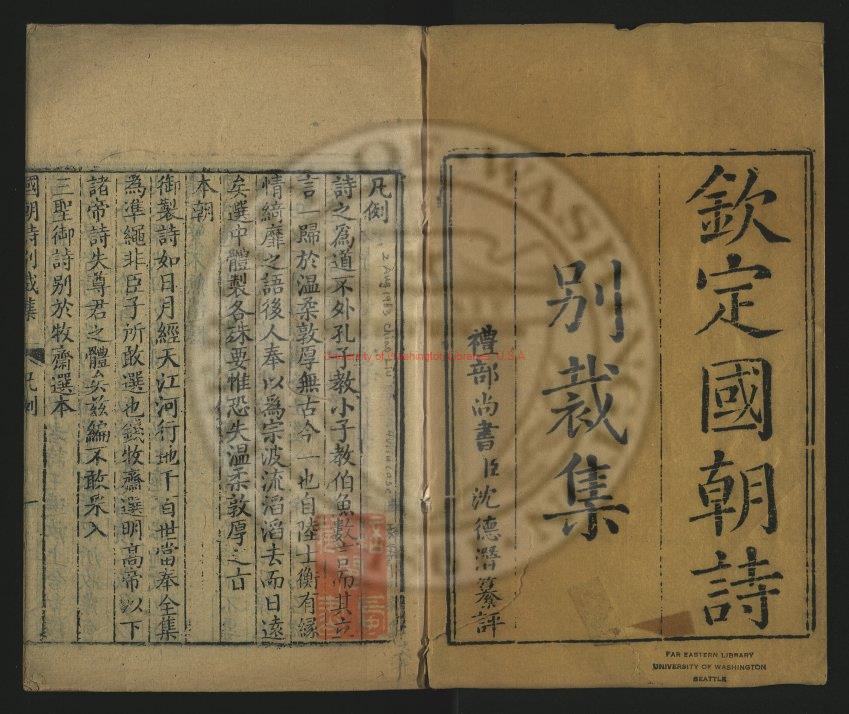 欽定國朝詩
別裁集
禮部尚書臣沈德潛纂評
FAR EASTERN LIBRARY
UNIVERSITY OF WASHINGTON
SEATTLE
凡例
詩之爲道不外孔子教小子教伯魚數言而其立
言一歸於温柔敦厚無古今一也自陸士衡有緣
情綺靡之語後人奉以爲宗波流滔滔去而日遠
矣選中體製各殊要惟恐失温柔敦厚之旨
本朝
御製詩如日月經天江河行地千百世當奉全集
為準繩非臣子所敢選也錢牧齋選明高帝以下
諸帝詩失尊君之體矣兹編不敢采入
三聖御詩別於牧齋選本
國朝詩別裁集
凡例
University of Washington Libraries, U.S.A